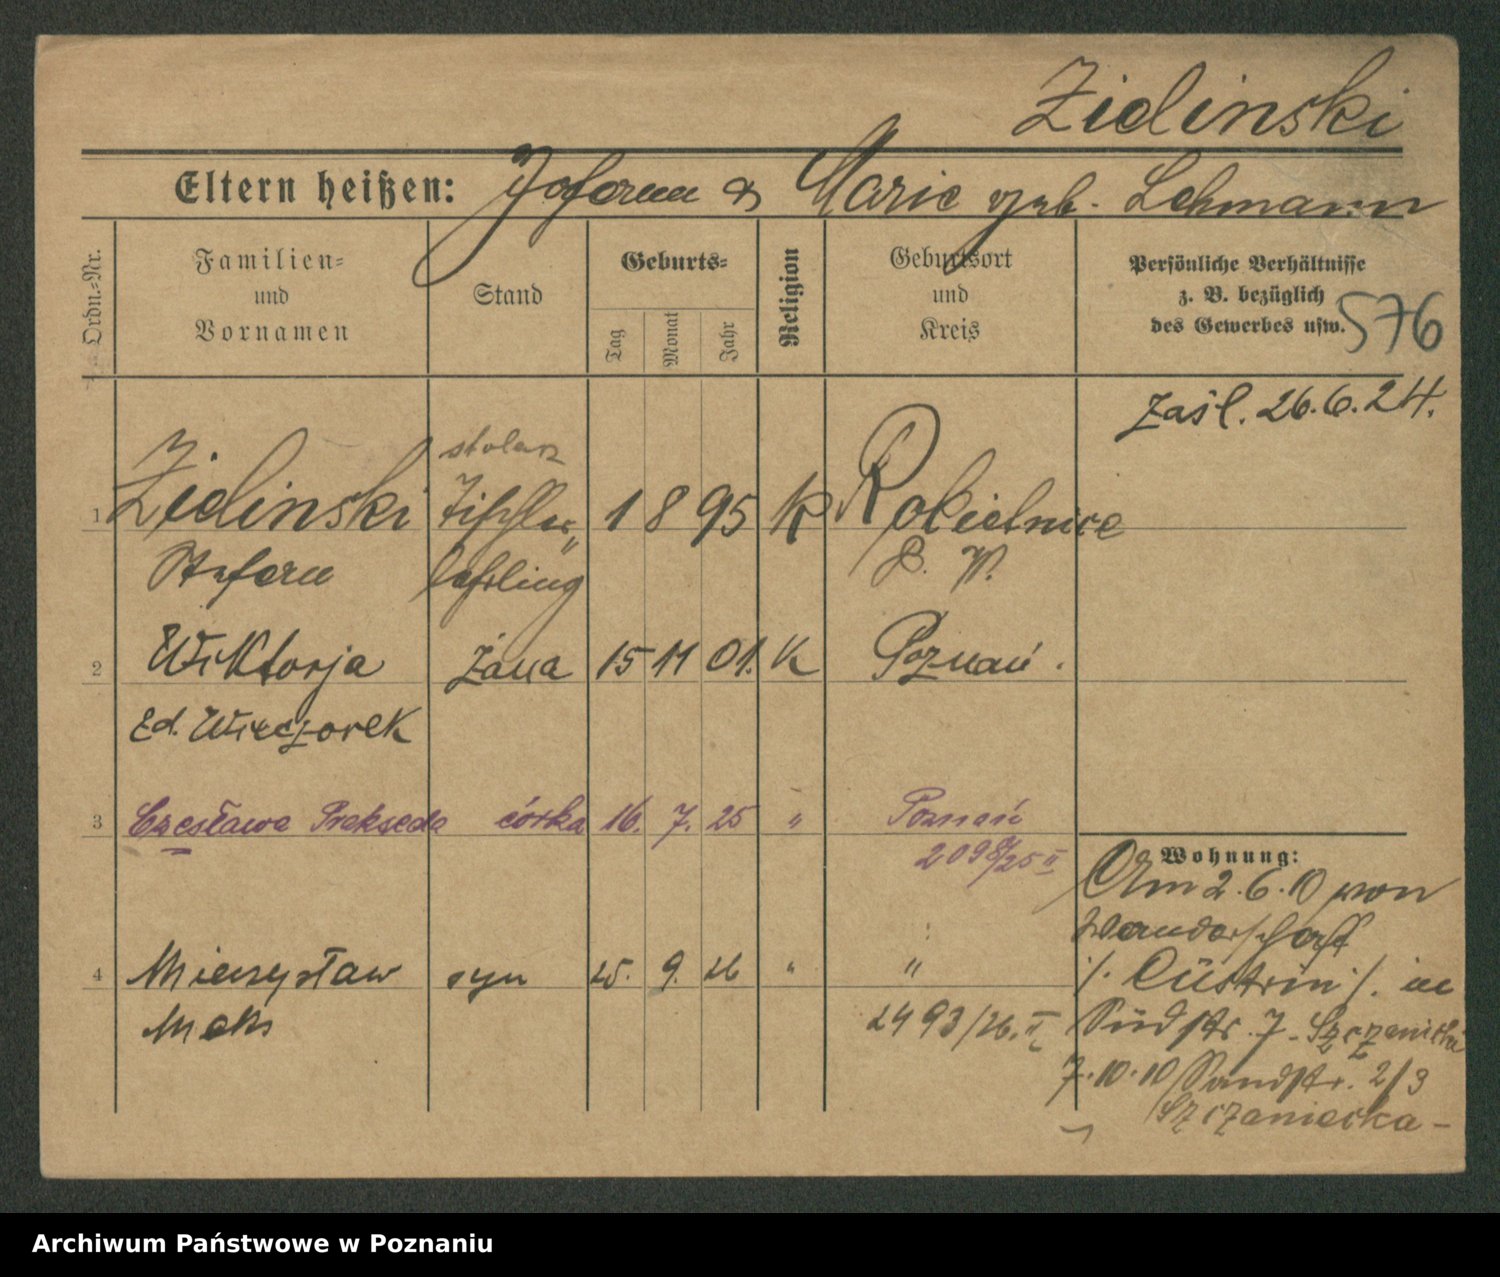 Zielinski
Eltern heißen: Johann & Marie geb. Lehmann
Ordn.-Nr.
Familien-
und
Vornamen
Stand
Geburts-
Tag
Monat
Jahr
Religion
Geburtsort
und
Kreis
Persönliche Verhältnisse
z. B. bezüglich
des Gewerbes usw.
576
Zaśl. 26.6.24.
stolarz
1 Zielinski Tischler- 1 8 95 K Rokietnice
Stefan lehrling P. W.
2 Wiktorja żona 15 11 01. K Poznań.
Wieczorek
3 Czesława Prakseda córka 16. 7. 25 " Poznań
2098/25 II
Wohnung:
Am 2.6.10 von
Wanderschaft
/. Cüstrin /. in
Südstr. 7. Szczaniecka
7.10.10 Sandstr. 2/3
Szczaniecka
4 Mieczysław syn 25. 9. 26 " "
Maks 2493/26. II
Archiwum Państwowe w Poznaniu